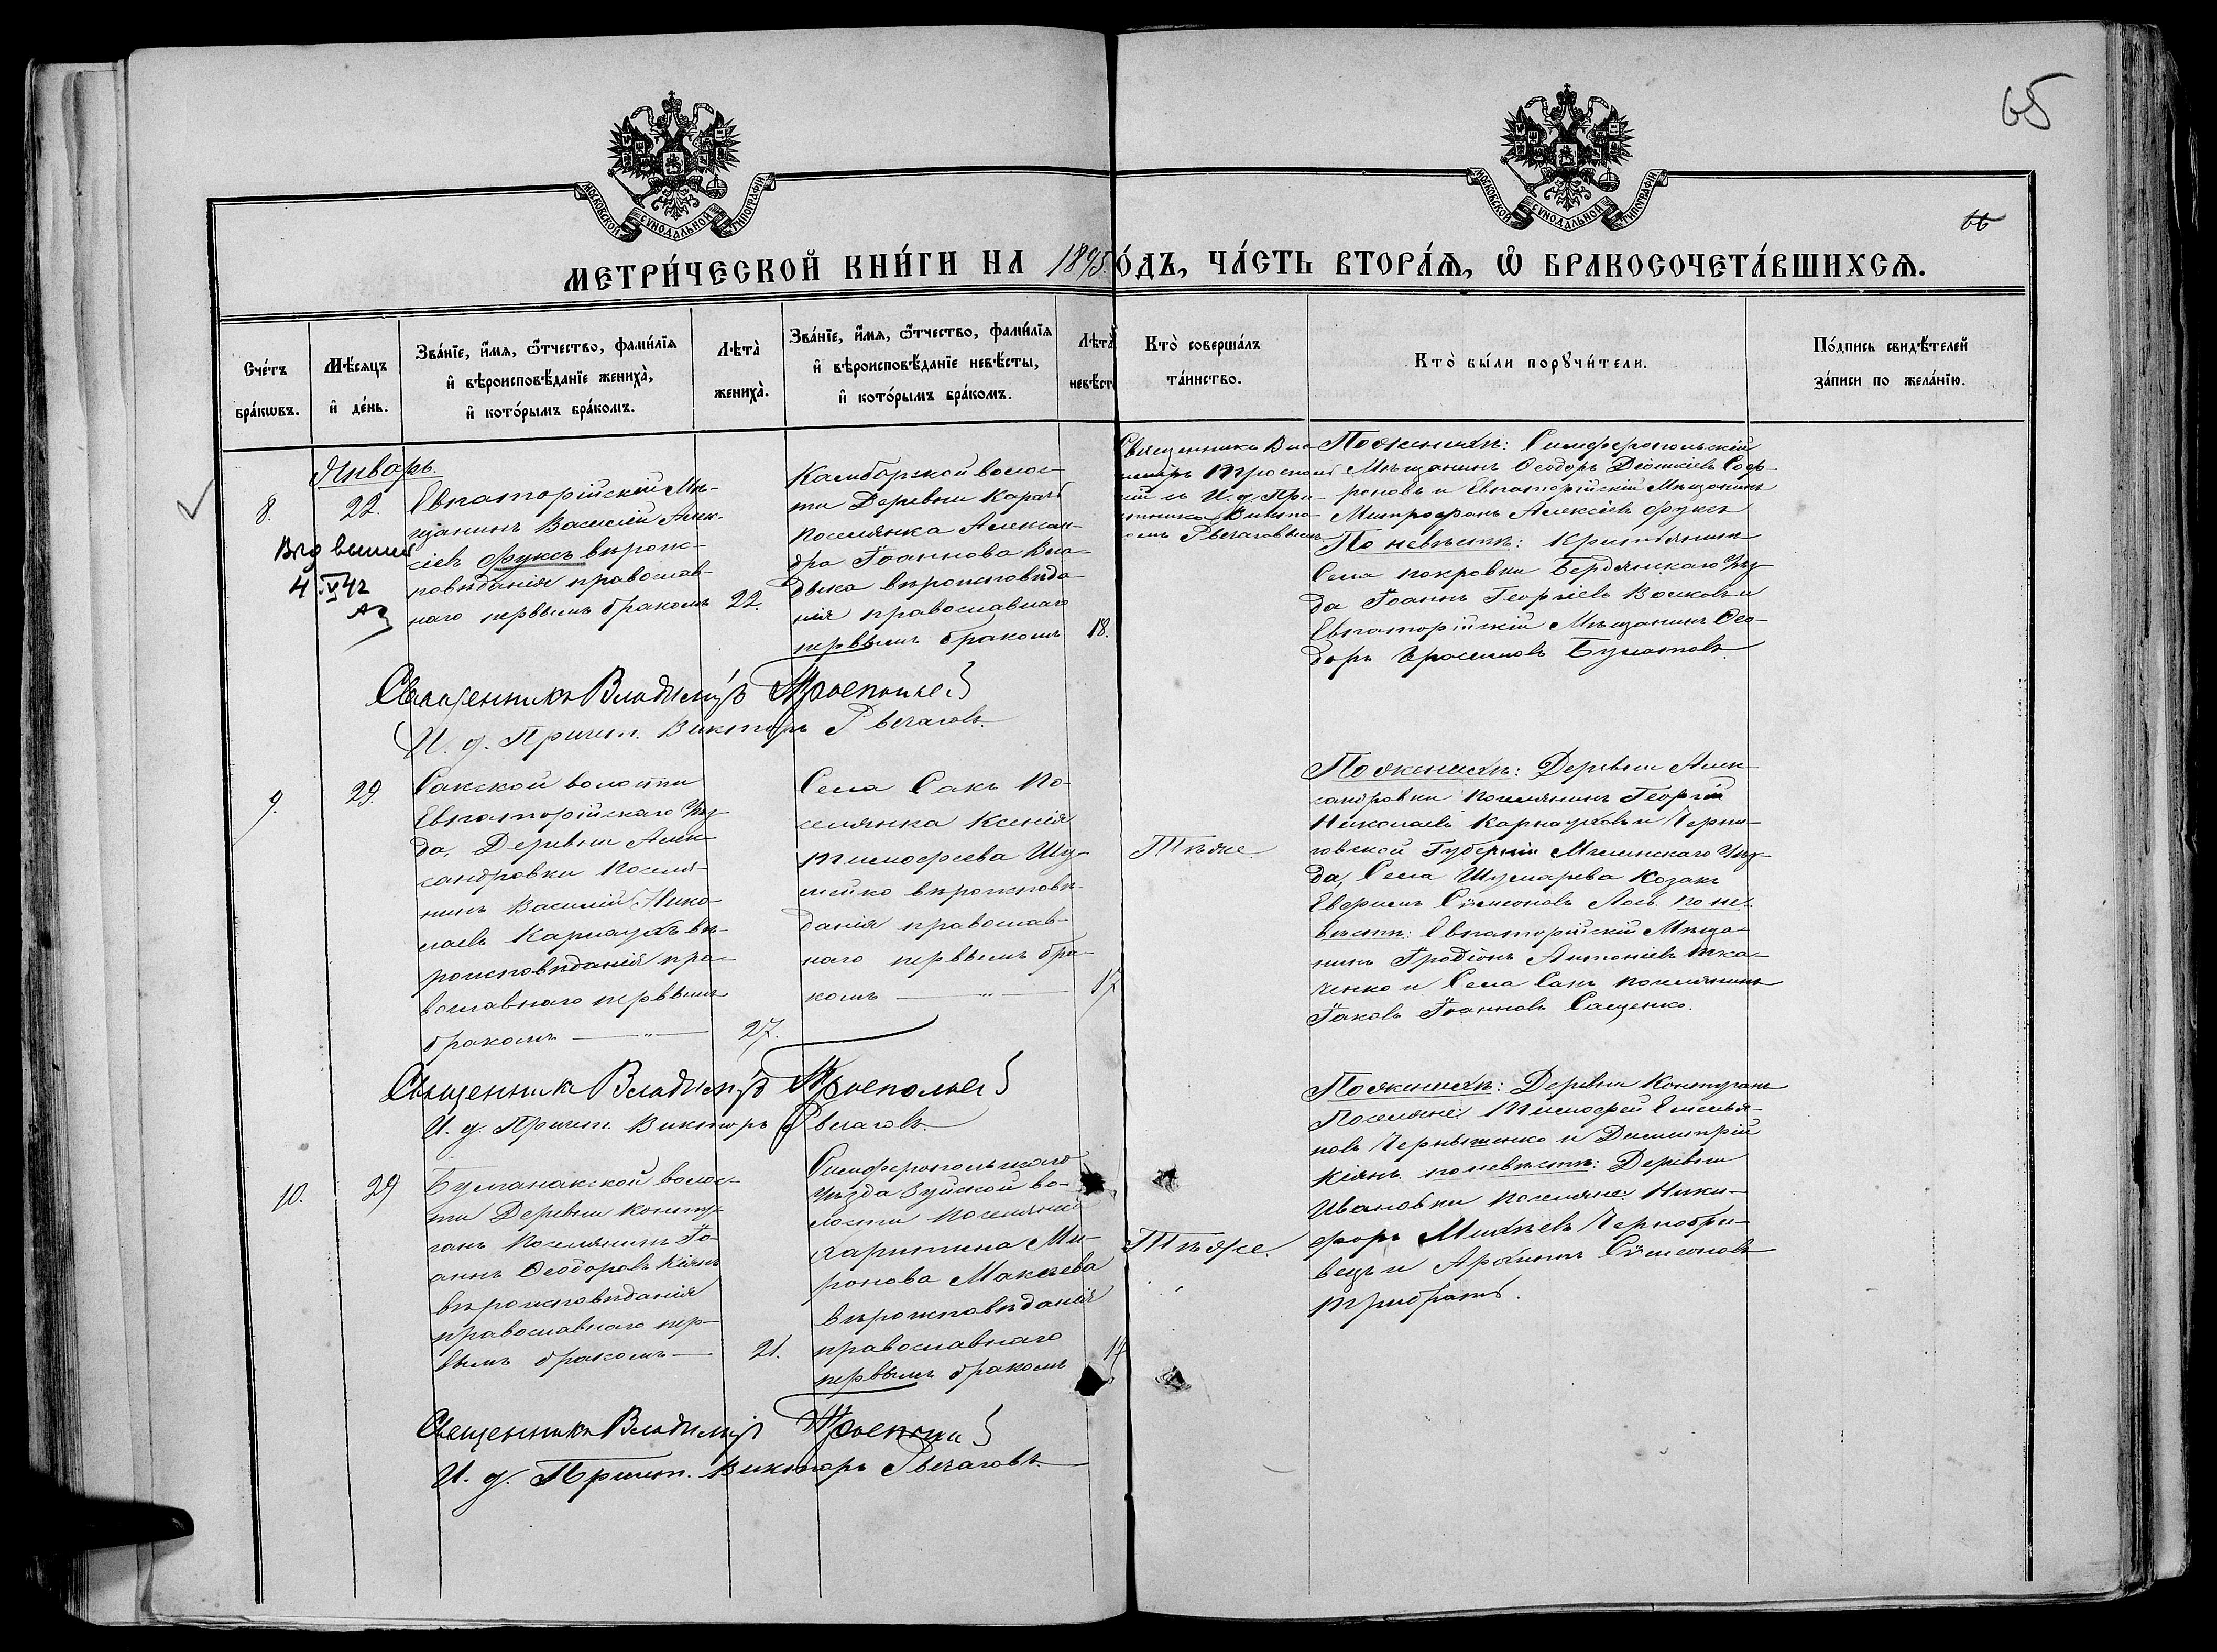 65
66
МОСКОВСКОЙ СѴНОДАЛЬНОЙ ТИПОГРАФІИ
МОСКОВСКОЙ СѴНОДАЛЬНОЙ ТИПОГРАФІИ
МЕТРИ́ЧЕСКОЙ КНИ́ГИ НА 1895 О́ДЪ, ЧА́СТЬ ВТОРА́Ѧ, Ѽ БРАКОСОЧЕТА́ВШИХСѦ.
Сче́тъ
бра́кѡвъ.
Мѣ́сяцъ
и҆ де́нь.
Зва́нїе, и҆́мѧ, ѻ҆́тчество, фами́лїѧ
и҆ вѣроисповѣ́данїе жениха̀,
и҆ кото́рымъ бра́комъ.
Лѣта̀
жениха̀.
Зва́нїе, и҆́мѧ, ѻ҆́тчество, фами́лїѧ
и҆ вѣроисповѣ́данїе невѣ́сты,
и҆ кото́рымъ бра́комъ.
Лѣта̀
невѣ́ст
Кто̀ соверша́лъ
та́инство.
Кто̀ бы́ли порꙋчи́тели.
По́дпись свидѣ́телей
за́писи по жела́нїю.
Январь.
8.
22.
Евпаторійскій Мѣ-
щанинъ Василій Алек-
сіевъ Фуксъ вѣроис-
повѣданія православ-
наго первымъ бракомъ
22.
4.V 42
Камбарской волос-
ти Деревни Карачъ
поселянка Алексан-
дра Іоаннова Вла-
дыка вѣроисповѣда-
нія православнаго
первымъ бракомъ
18.
Священникъ Вла-
диміръ Троеполь
скій съ И. д. Пса-
Викто-
ромъ Рвачаговымъ
По женихѣ: Симферопольскій
Мѣщанинъ Ѳеодоръ Діонисіевъ Соф-
роновъ и Евпаторійскій Мѣщанинъ
Митрофанъ Алексіевъ Фуксъ
По невѣстѣ: Крестьянинъ
Села покровки Бердянскаго Уѣз-
да Іоаннъ Георгіевъ Волковъ и
Евпаторійскій Мѣщанинъ Ѳео-
доръ Герасимовъ Булатовъ
Священникъ Владиміръ Троепольскій
И. д. Причет. Викторъ Рвачаговъ.
9.
29.
Сакской волости
Евпаторійскаго Уѣз-
да, Деревни Алек-
сандровки Поселя-
нинъ Василій Нико-
лаевъ Карнаухъ вѣ-
роисповѣданія пра-
вославнаго первымъ
бракомъ — " —
27.
Села Сакъ По-
селянка Ксенія
Тимофеева Шу-
мейко вѣроисповѣ-
данія православ-
наго первымъ бра-
комъ — " —
17
Тѣже.
По женихѣ: Деревни Алек-
сандровки Поселянинъ Георгій
Николаевъ Карнауховъ и Черни-
говской Губерніи Мглинскаго Уѣз-
да, Села Шумарева Козакъ
Ефремъ Симеоновъ Лось. По не-
вѣстѣ: Евпаторійскій Мѣща-
нинъ Іродіонъ Антоніевъ Тка-
ченко и Села Сакъ поселянинъ
Іаковъ Іоанновъ Сащенко.
Священникъ Владиміръ Троепольскій
И. д. Причет. Викторъ Рвачаговъ.
10.
29
Булганакской волос-
ти Деревни Конту-
ганъ Поселянинъ Іо-
аннъ Ѳеодоровъ Кіянъ
вѣроисповѣданія
православнаго пер-
вымъ бракомъ —
21.
Симферопольскаго
Уѣзда Зуйской во-
лости Поселянка
Харитина Ми-
ронова Макѣева
вѣроисповѣданія
православнаго
первымъ бракомъ
17
Тѣже.
По женихѣ: Деревни Контуганъ
Поселяне Тимофей Емелья-
новъ Чернышенко и Димитрій
Кіянъ. по невѣстѣ: Деревни
Ивановки Поселяне Ники-
форъ Михѣевъ Чернобри-
вецъ и Архиппъ Симеоновъ
Трибратъ.
Священникъ Владиміръ Троепольскій
И. д. Причет. Викторъ Рвачаговъ